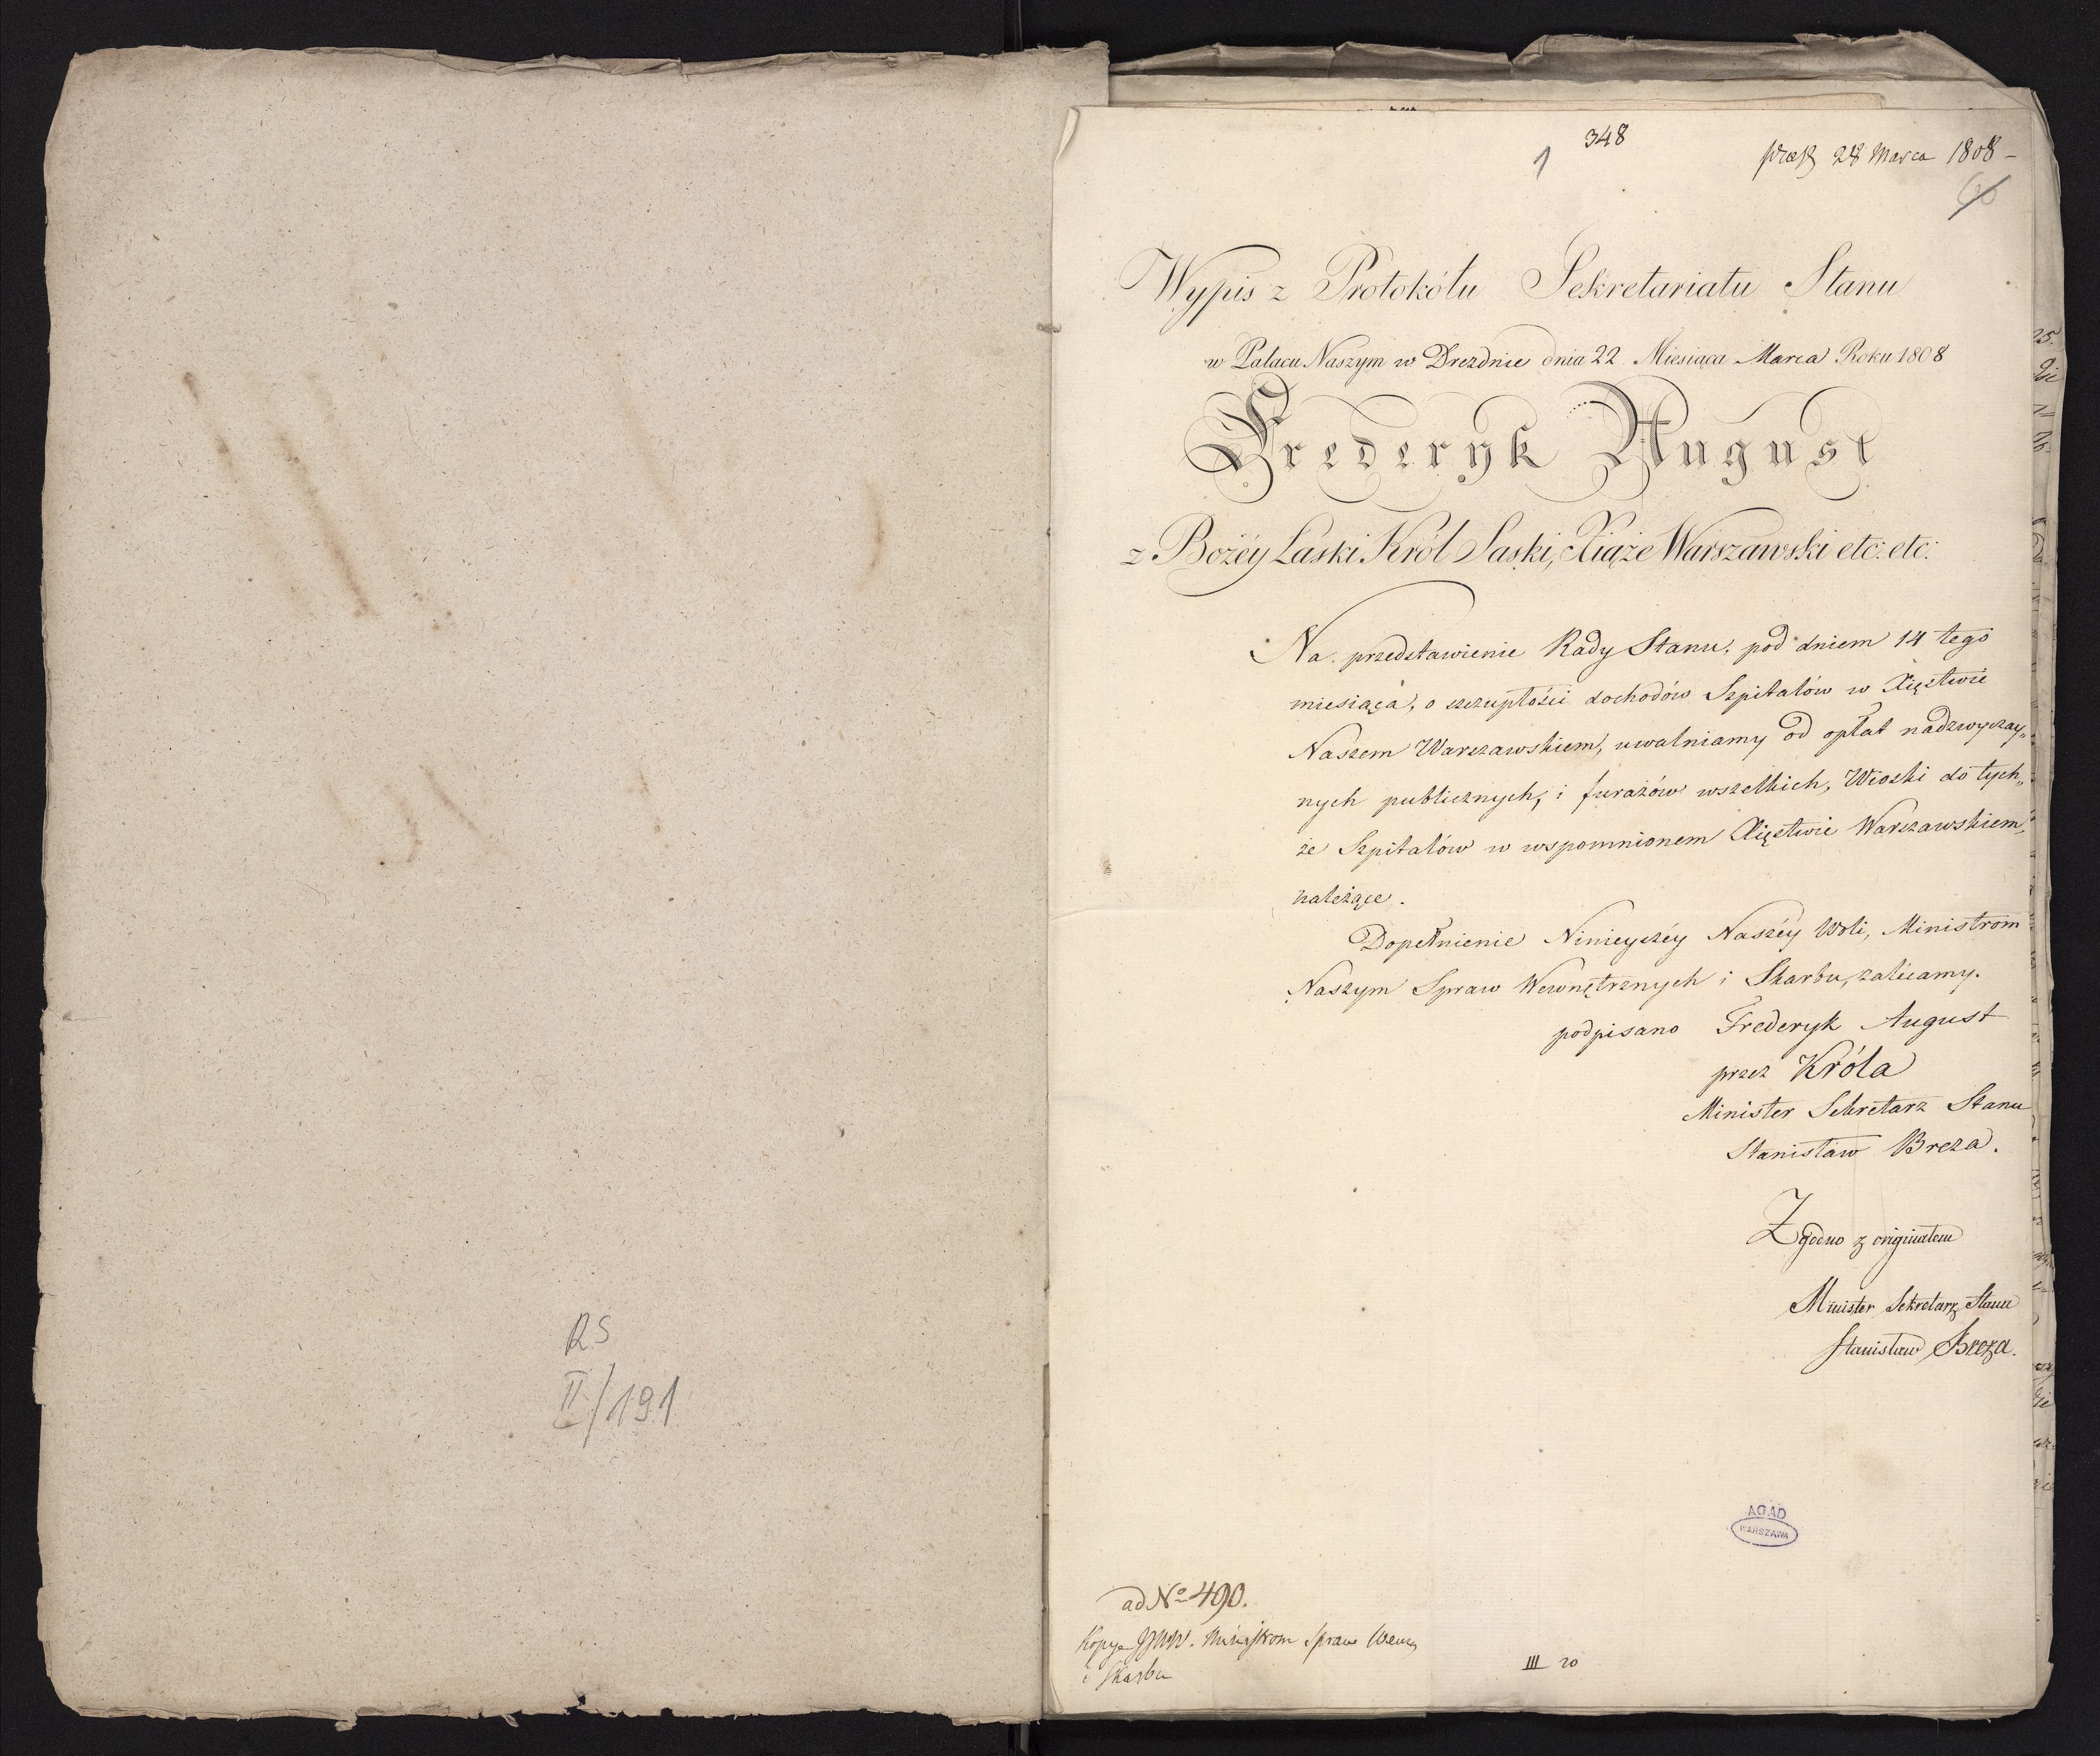 348
1
præs 28 Marca 1808 –
Wypis z Protokółu Sekretariatu Stanu
w Pałacu Naszym w Dreznie dnia 22 Miesiąca Marca Roku 1808
Frederyk August
z Bożéy Łaski Król Saski, Xiąże Warszawski etc: etc:
Na przedstawienie Rady Stanu, pod dniem 14 tego
miesiąca, o szczupłości dochodów Szpitalów w Xięstwie
Naszem Warszawskiem, uwalniamy od opłat nadzwyczay„
nych publicznych, i furażów wszelkich, Wioski do tych„
że Szpitalów w wspomnionem Xięstwie Warszawskiem,
należące.
Dopełnienie Ninieyszéy Naszéy Woli, Ministrom
Naszym Spraw Wewnętrznych i Skarbu, zalécamy.
podpisano Frederyk August
przez Króla
Minister Sekretarz Stanu
Stanisław Breza.
Zgodno z originałem
Minister Sekretarz Stanu
Stanisław Breza.
RS
II/191
AGAD
WARSZAWA
ad No 490.
Kopye Ministrom Spraw Wewn
i Skarbu
III 20